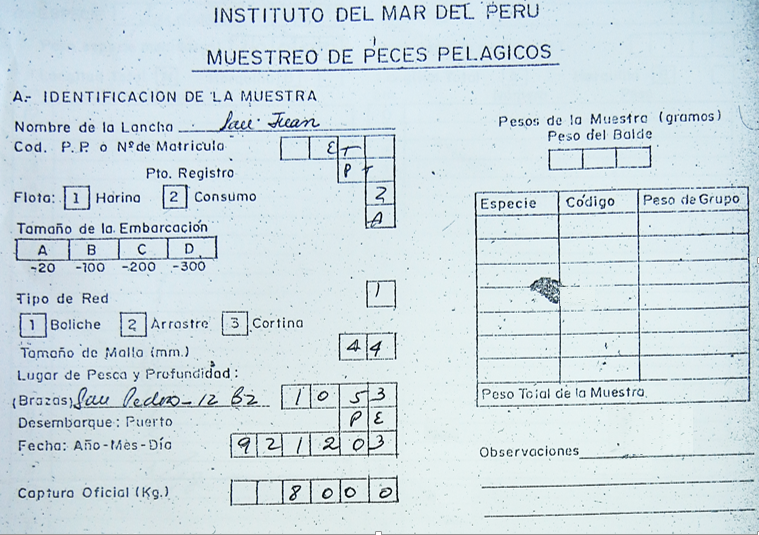 INSTITUTO DEL MAR DEL PERU
MUESTREO DE PECES PELAGICOS
A.- IDENTIFICACION DE LA MUESTRA
Nombre de la Lancha San Juan
Cod. P.P. o Nº de Matricula E T
Pto. Registro P T
Flota: 1 Harina 2 Consumo 2
Tamaño de la Embarcación A
A B C D
-20 -100 -200 -300
Tipo de Red 1
1 Boliche 2 Arrastre 3 Cortina
Tamaño de Malla (mm.) 4 4
Lugar de Pesca y Profundidad:
(Brazas) San Pedro - 12 Bz 1 0 5 3
Desembarque: Puerto P E
Fecha: Año-Mes-Día 9 2 1 2 0 3
Captura Oficial (Kg.) 8 0 0 0
Pesos de la Muestra (gramos)
Peso del Balde
Especie Código Peso de Grupo
Peso Total de la Muestra
Observaciones